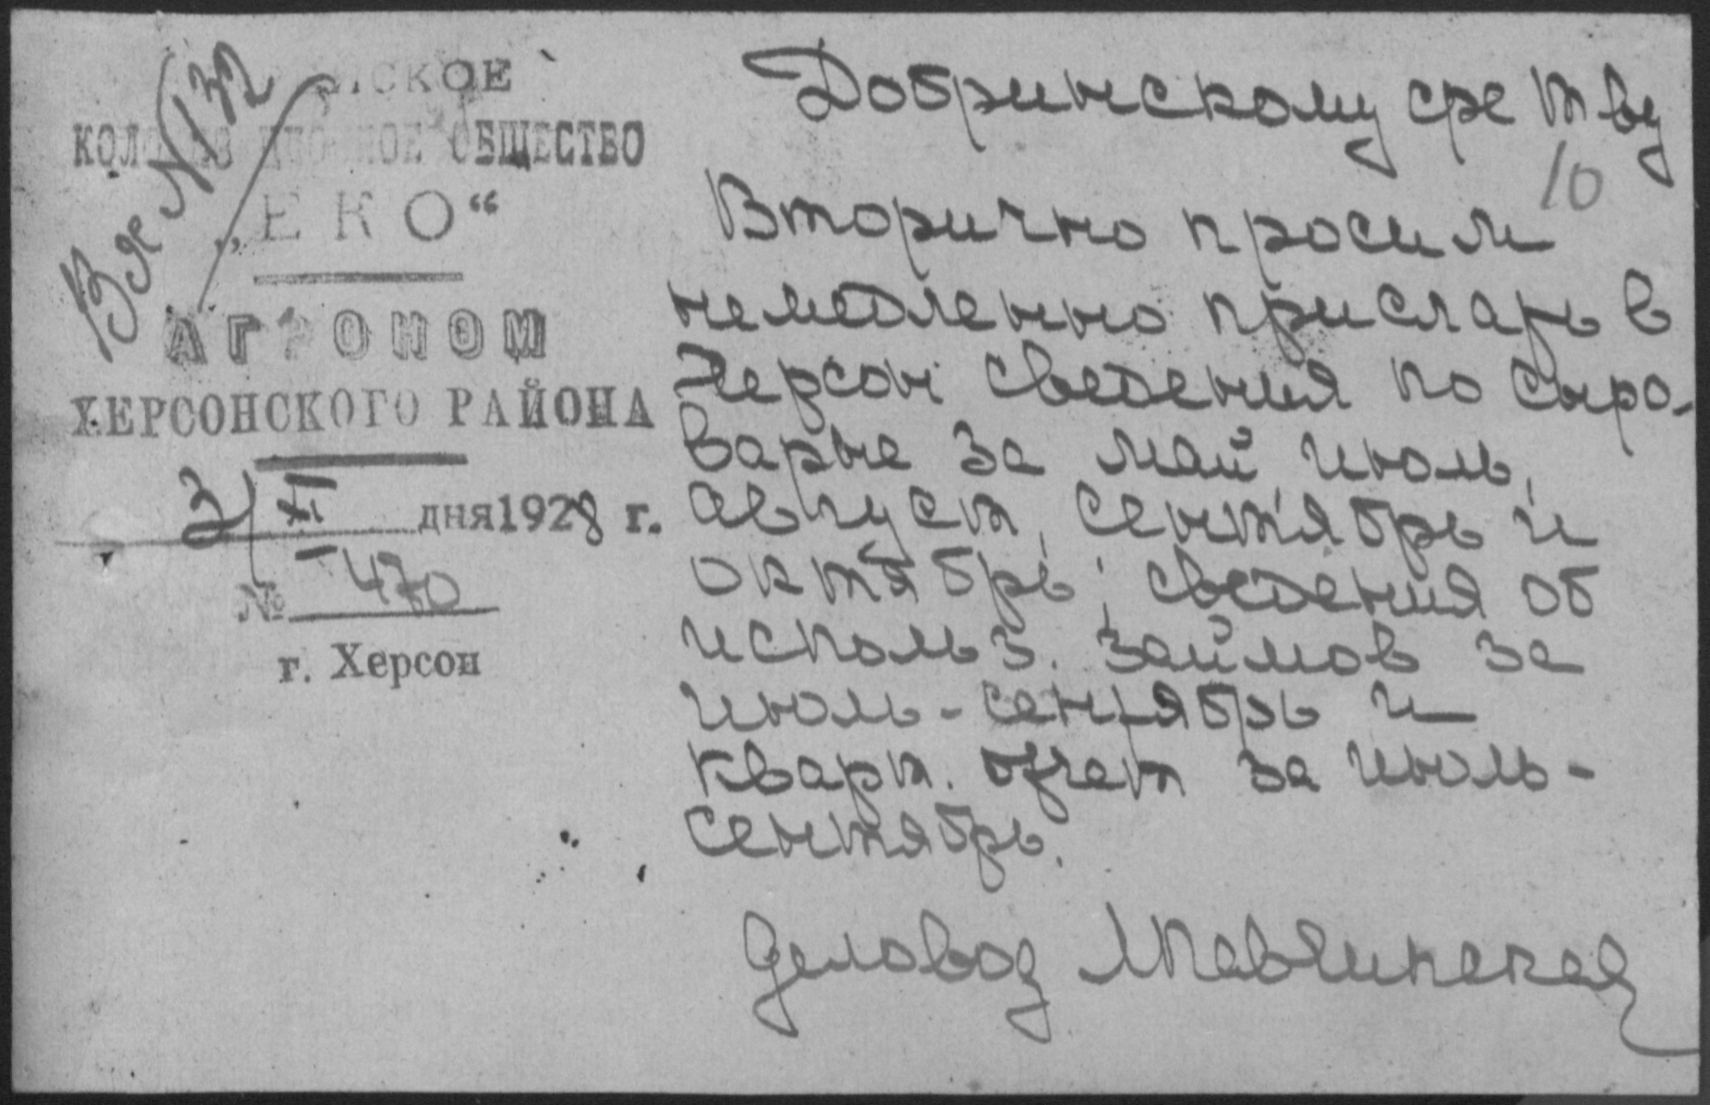 ОБЩЕСТВО
„ЕКО“
АГРОНОМ
ХЕРСОНСКОГО РАЙОНА
3/XI дня 1928 г.
№ 470
г. Херсон
№ 132
Добринскому
10
Вторично просим
немедленно прислать в
Херсон сведения по сыро-
варне за май, июль,
август, сентябрь и
октябрь; сведения об
использ. займов за
июль-сентябрь и
кварт. отчет за июль-
сентябрь.
Деловод